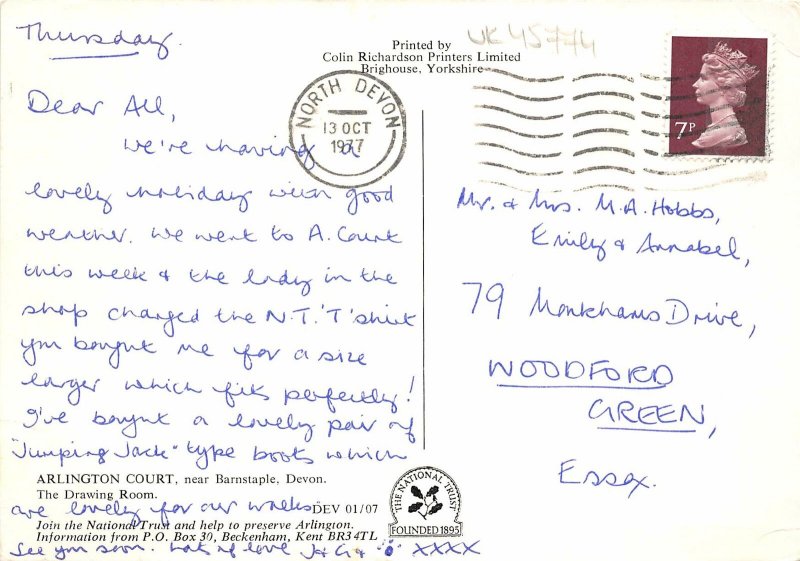 Thursday.
Dear All,
We're having a
lovely holiday with good
weather. We went to A. Court
this week & the lady in the
shop charged the N.T. 'T' shirt
you bought me for a size
larger which fits perfectly!
I've bought a lovely pair of
"Jumping Jack" type boots which
ARLINGTON COURT, near Barnstaple, Devon.
The Drawing Room.
are lovely for our walks.
DEV 01/07
Join the National Trust and help to preserve Arlington.
Information from P.O. Box 30, Beckenham, Kent BR3 4TL
See you soon. Lots of love J & G & XXXX
Printed by
Colin Richardson Printers Limited
Brighouse, Yorkshire
UK45774
NORTH DEVON
13 OCT
1977
7P
Mr. & Mrs. M.A. Hobbs,
Emily & Annabel,
79 Monkhams Drive,
WOODFORD
GREEN,
Essex.
THE NATIONAL TRUST
FOUNDED 1895